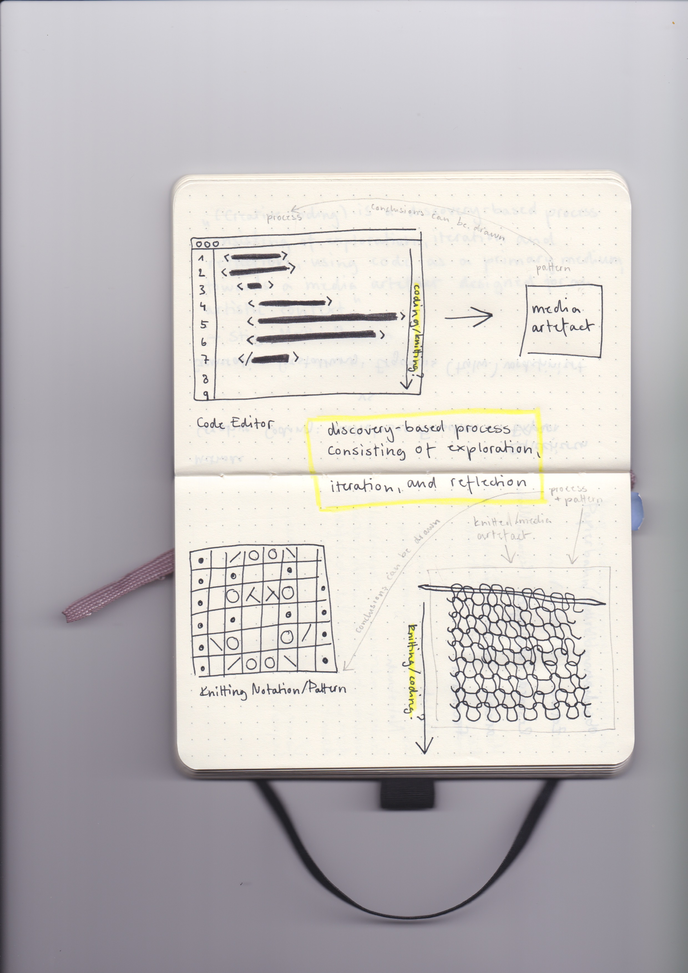 process
conclusions can be drawn
pattern
1
2
3
4
5
6
7
8
9
coding/knitting?
media
artefact
Code Editor
discovery-based process
consisting of exploration,
iteration, and reflection
process
+ pattern
knitted/media
artefact
conclusions can be drawn
knitting/coding?
Knitting Notation/Pattern